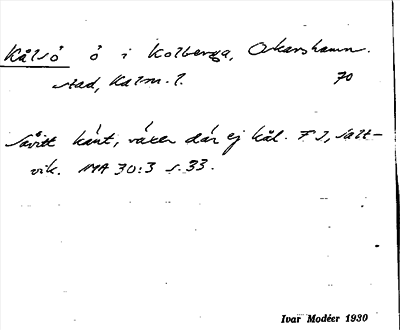 Kålsö ö i Kolberga, Oskarshamn.
stad, Kalm. l. 70
Såvitt känt, växer där ej kål. F J, Salt-
vik. NMA 30:3 s. 33.
Ivar Modéer 1930